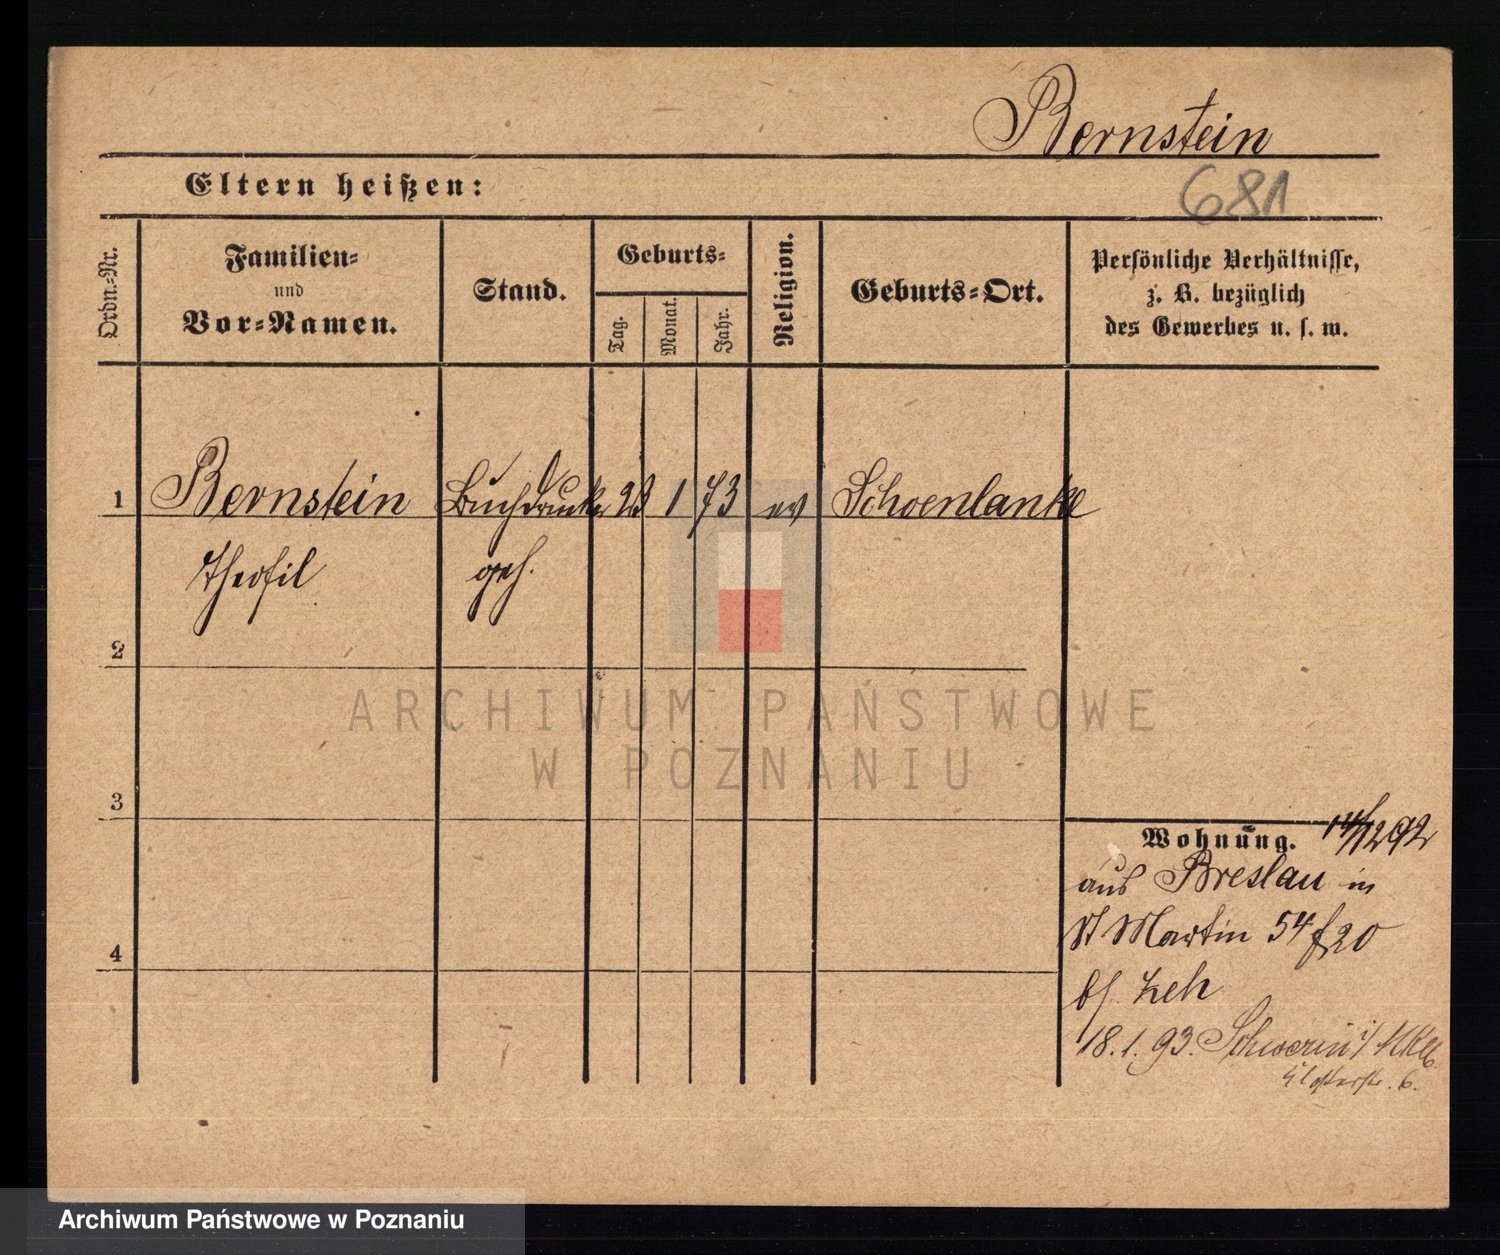 Bernstein
681
Eltern heißen:
Ordn.-Nr.
Familien-
und
Vor-Namen.
Stand.
Geburts-
Tag.
Monat.
Jahr.
Religion.
Geburts-Ort.
Persönliche Verhältnisse,
z. B. bezüglich
des Gewerbes u. s. w.
1 Bernstein Buchdrucker 23 1 73 ev Schoenlanke
Theofil geh.
2
ARCHIWUM PAŃSTWOWE
W POZNANIU
3
4
Wohnung. 14/12 92
aus Breslau in
St Martin 54 f 20
bf Zeh
18.1.93. Schwerin i/ Mklb.
6.
Archiwum Państwowe w Poznaniu